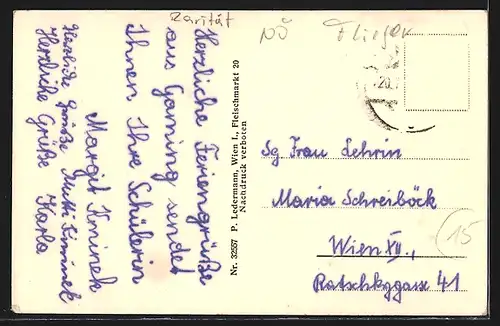 Rarität
NÖ Flieger
20.
Herzliche Feriengrüße
aus Gaming sendet
Ihnen Ihre Schülerin
Margit Kminek
Herzliche Grüße Mutti Kminek
Herzliche Grüße Karla
Nr. 32257 P. Ledermann, Wien I., Fleischmarkt 20
Nachdruck verboten
Sg. Frau Lehrin
Maria Schreiböck
Wien XII.,
Ratschkygasse 41
15